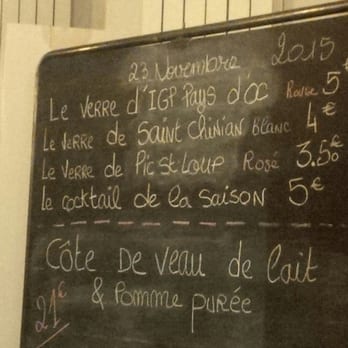 23 Novembre 2015
Le verre d'IGP Pays d'oc Rouge 5€
Le verre de Saint Chinian Blanc 4€
Le verre de Pic st Loup Rosé 3.50€
Le cocktail de la saison 5€
Côte De veau de lait
& Pomme purée
21€